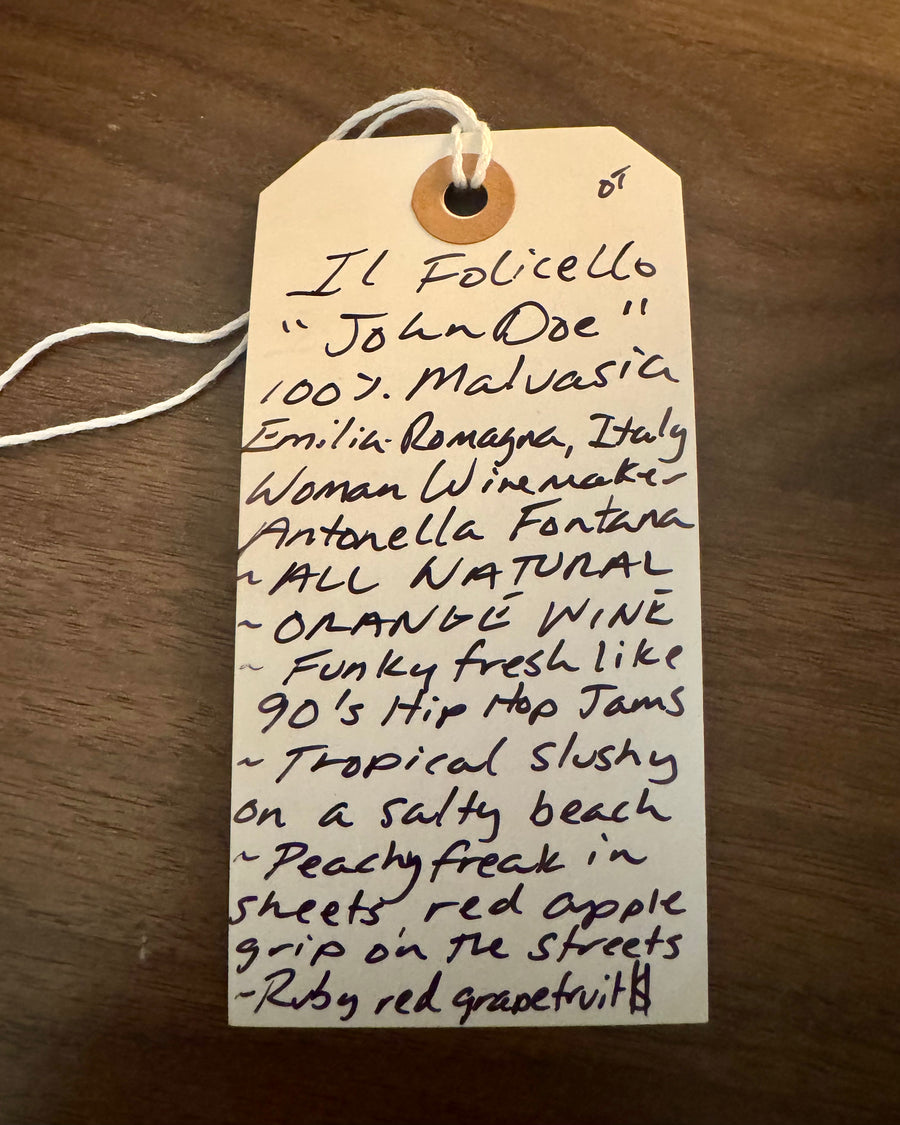 OT
Il Folicello
"John Doe"
100%. Malvasia
Emilia-Romagna, Italy
Woman Winemaker
Antonella Fontana
~ ALL NATURAL
~ ORANGE WINE
~ Funky fresh like
90's Hip Hop Jams
~ Tropical slushy
on a salty beach
~ Peachy freak in
sheets red apple
grip on the streets
~ Ruby red grapefruit